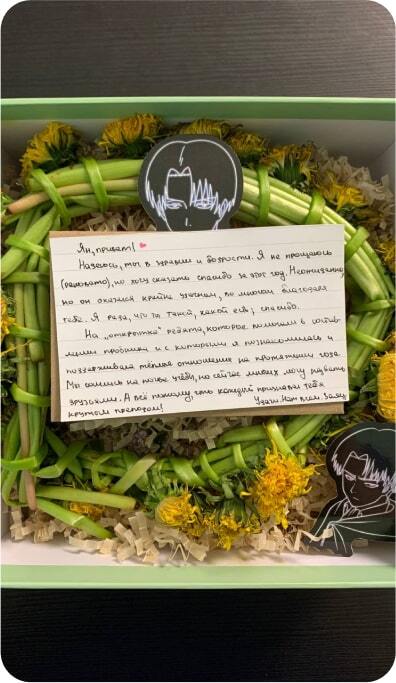 Ян, привет!
Надеюсь, ты в здравии и бодрости. Я не прощаюсь
(рановато), но хочу сказать спасибо за этот год. Неожиданно,
но он оказался крайне удачным, во многом благодаря
тебе. Я рада, что ты такой, какой есть, спасибо.
На "открытке" ребята, которые помогали в составлении
пробника и с которыми я познакомилась и
поддерживала тёплые отношения на протяжении года.
Мы сошлись на почве учёбы, но сейчас многих могу назвать
друзьями. А всё потому, что каждый признавал тебя
крутым преподом!
Удачи. Нам всем.